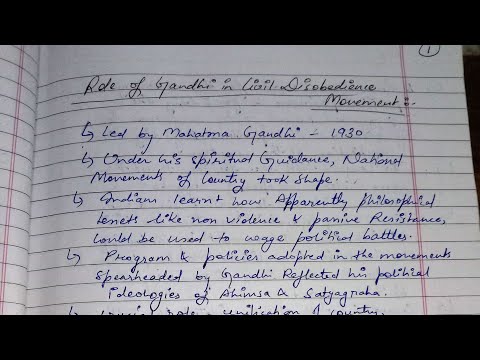 1
Role of Gandhi in Civil Disobedience
Movement :
↳ Led by Mahatma Gandhi - 1930
↳ Under his Spiritual Guidance, National
Movements of Country took Shape...
↳ Indians learnt how Apparently philosophical
tenets like non violence & passive Resistance,
could be used to wage political battles.
↳ Program & policies adopted in the movements
spearheaded by Gandhi Reflected his political
ideologies of Ahimsa & Satyagraha.
↳ role - unification of country.